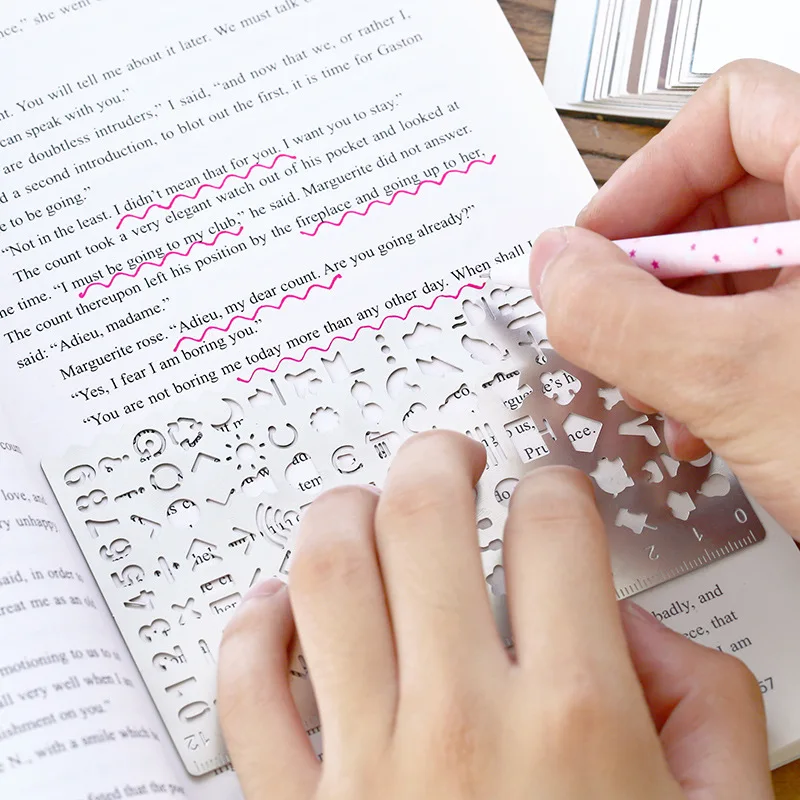 nce," she went
nt. You will tell me about it later. We must talk
can speak with you."
are doubtless intruders," I said, "and now that we, or rather I,
d a second introduction, to blot out the first, it is time for Gaston
e to be going."
"Not in the least. I didn't mean that for you. I want you to stay."
The count took a very elegant watch out of his pocket and looked at
he time. "I must be going to my club," he said. Marguerite did not answer.
The count thereupon left his position by the fireplace and going up to her,
said: "Adieu, madame."
Marguerite rose. "Adieu, my dear count. Are you going already?"
"Yes, I fear I am boring you."
"You are not boring me today more than any other day. When shall I
e's h
us,
nce.
Pru
tem
her
badly, and
ece, that
I am
67
count
love, and
ry unhappy
said, in order
treat me as an old
motioning to us to
all very well when I am
ishment on you."
e N., with a smile which
fated that the
0 1 2 3 4 5 6 7 8 9
0 1 2
12